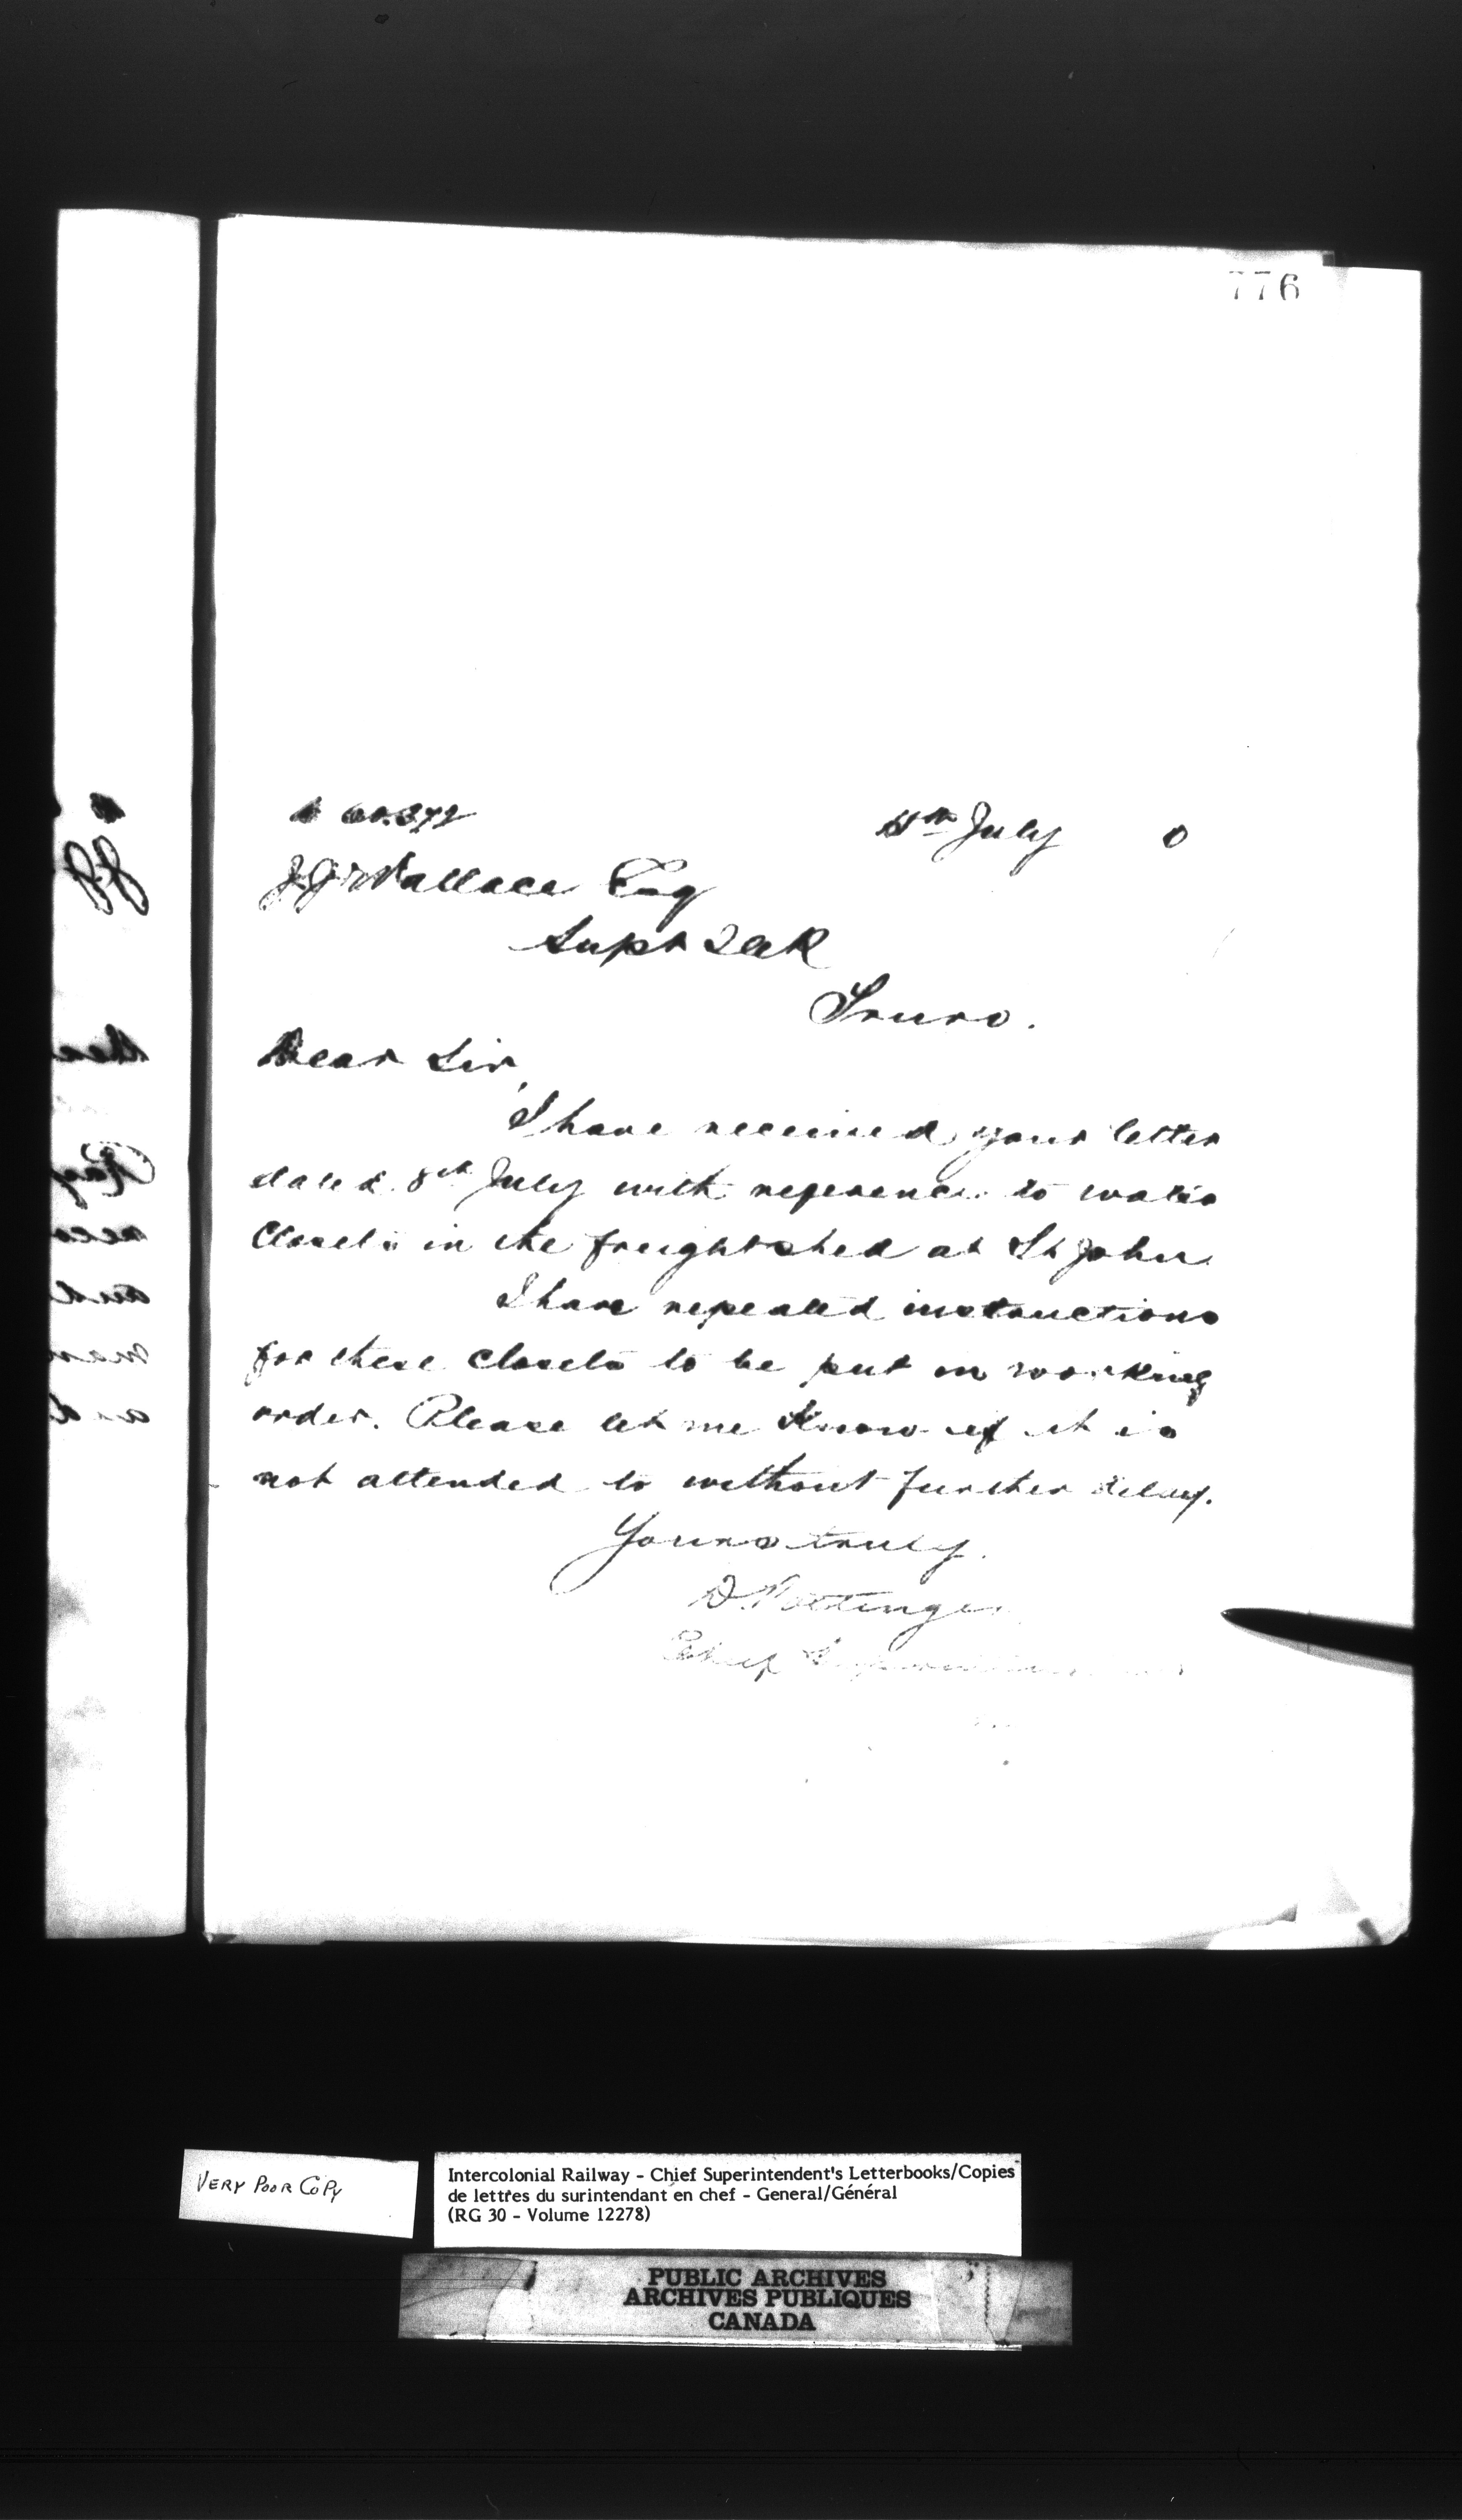 776
15th July 0
J.J. Wallace Esq
Supt ICR
Truro.
Dear Sir,
I have received your letter
dated 8th July with reference to water
Closets in the freight shed at St John
I have repeated instructions
for these closets to be put in working
order. Please let me know if it is
not attended to without further delay.
Yours truly.
D. Pottinger
Chief Superintendent
VERY POOR COPY
Intercolonial Railway - Chief Superintendent's Letterbooks/Copies
de lettres du surintendant en chef - General/Général
(RG 30 - Volume 12278)
PUBLIC ARCHIVES
ARCHIVES PUBLIQUES
CANADA